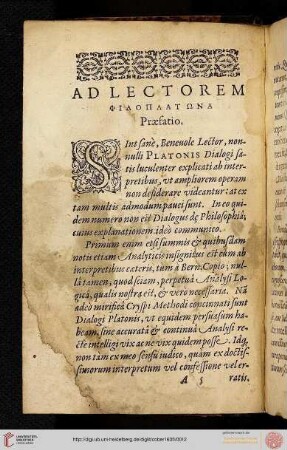 AD LECTOREM
ΦΙΛΟΠΛΑΤΩΝΑ
Præfatio.
SInt sanè, Benevole Lector, non-
nulli PLATONIS Dialogi sa-
tis luculenter explicati ab inter-
pretibus, ut ampliorem operam
non desiderare videantur: at ex
tam multis admodum pauci sunt. In eo qui-
dem numero non est Dialogus de Philosophiâ,
cuius explanationem ideò communico.
Primum enim etsi summis & quibusdam
notis etiam Analyticis insignitus est cùm ab
interpretibus cæteris, tum à Bern. Copio; nul-
li tamen, quod sciam, perpetuâ Analysi Lo-
gicâ, qualis nostra est, & verò necessaria. Nã
adeò mirificâ Crypsi Methodi concinnati sunt
Dialogi Platonis, ut equidem persuasum ha-
beam, sine accuratâ & continuâ Analysi re-
ctè intelligi vix ac ne vix quidem posse. Idq;
non tam ex meo sensu iudico, quàm ex doctis-
simorum interpretum vel confessione vel er-
A 5 ratis.
http://digi.ub.uni-heidelberg.de/diglit/kober1609/0013